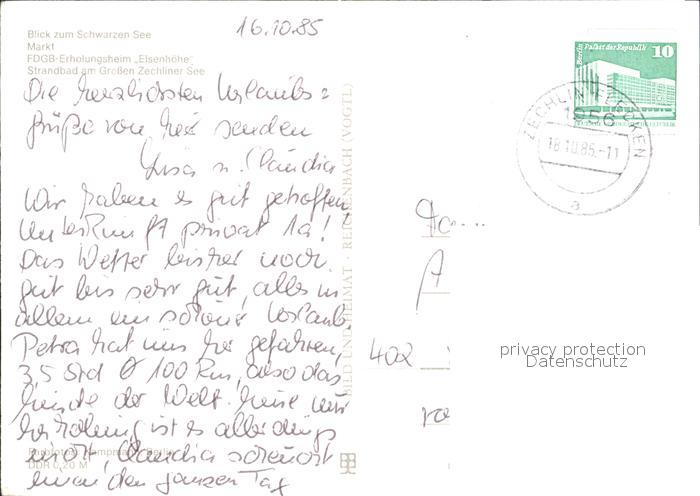 16.10.85
Blick zum Schwarzen See
Markt
FDGB-Erholungsheim „Elsenhöhe"
Strandbad am Großen Zechliner See
Die herzlichsten Urlaubs=
grüße von hier senden
Luisa u. Claudia
Wir haben es gut getroffen,
Unterkunft privat 1a!
Das Wetter bisher noch
gut bis sehr gut, alles in
allem ein schöner Urlaub.
Petra hat uns her gefahren,
3,5 Std Ø 100 km, also das
Ende der Welt. Eine
Erholung ist es allerdings
nicht, Claudia schnorrt
einen den ganzen Tag
DDR 0,20 M
BILD UND HEIMAT · REICHENBACH (VOGTL)
Berlin, Palast der Republik
10
ZECHLIN, FLECKEN
1956
18.10.85.-11
a
Fa
A
402
privacy protection
Datenschutz